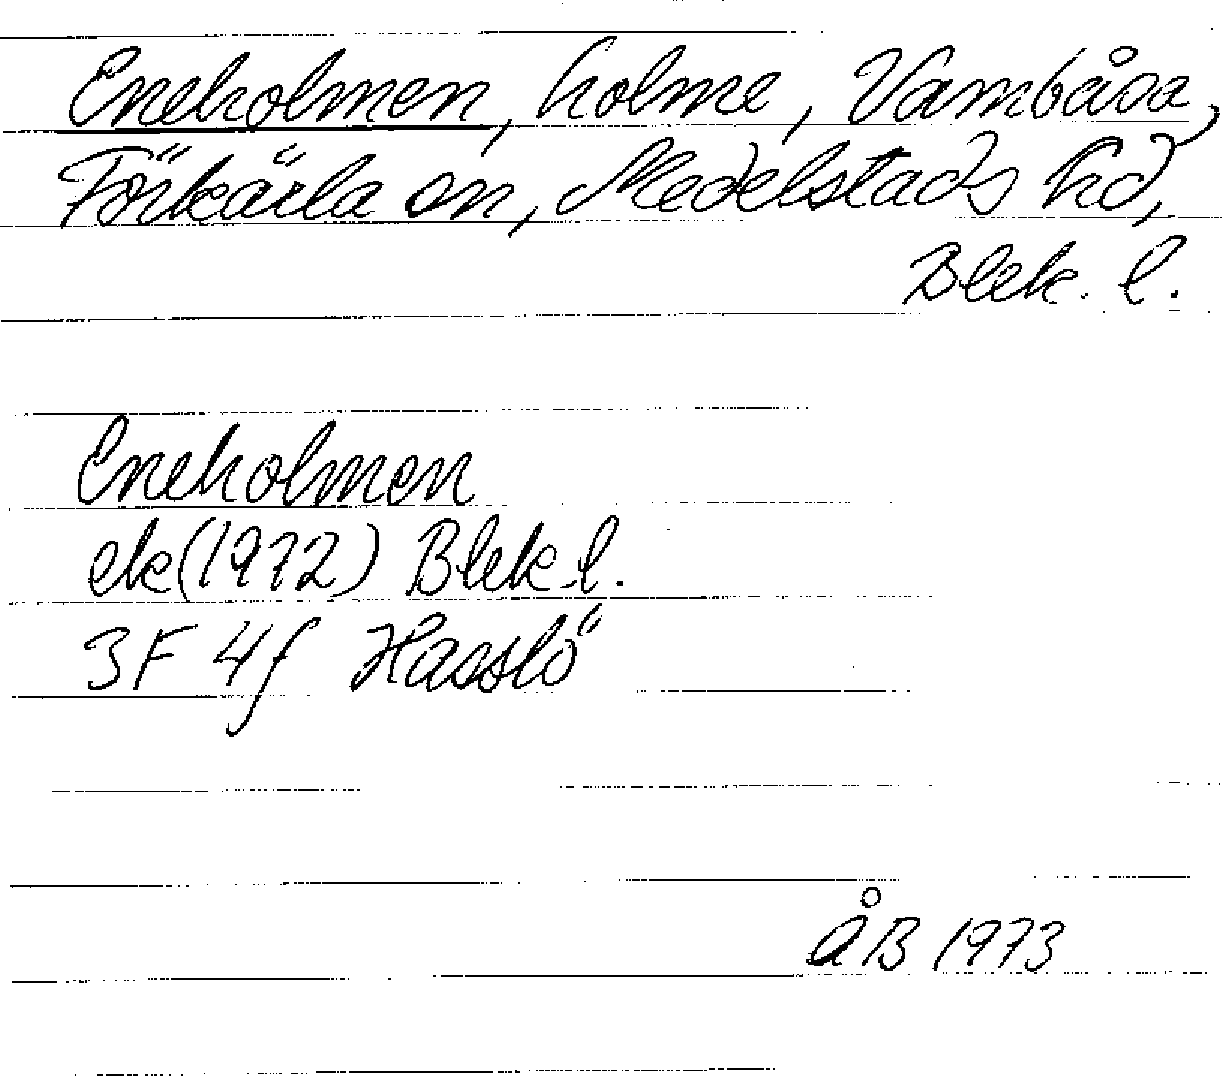 Eneholmen, holme, Vambåsa,
Förkärla sn, Medelstads hd,
Blek. l.
Eneholmen
ek (1972) Blek l.
3F 4f Hasslö
ÅB 1973